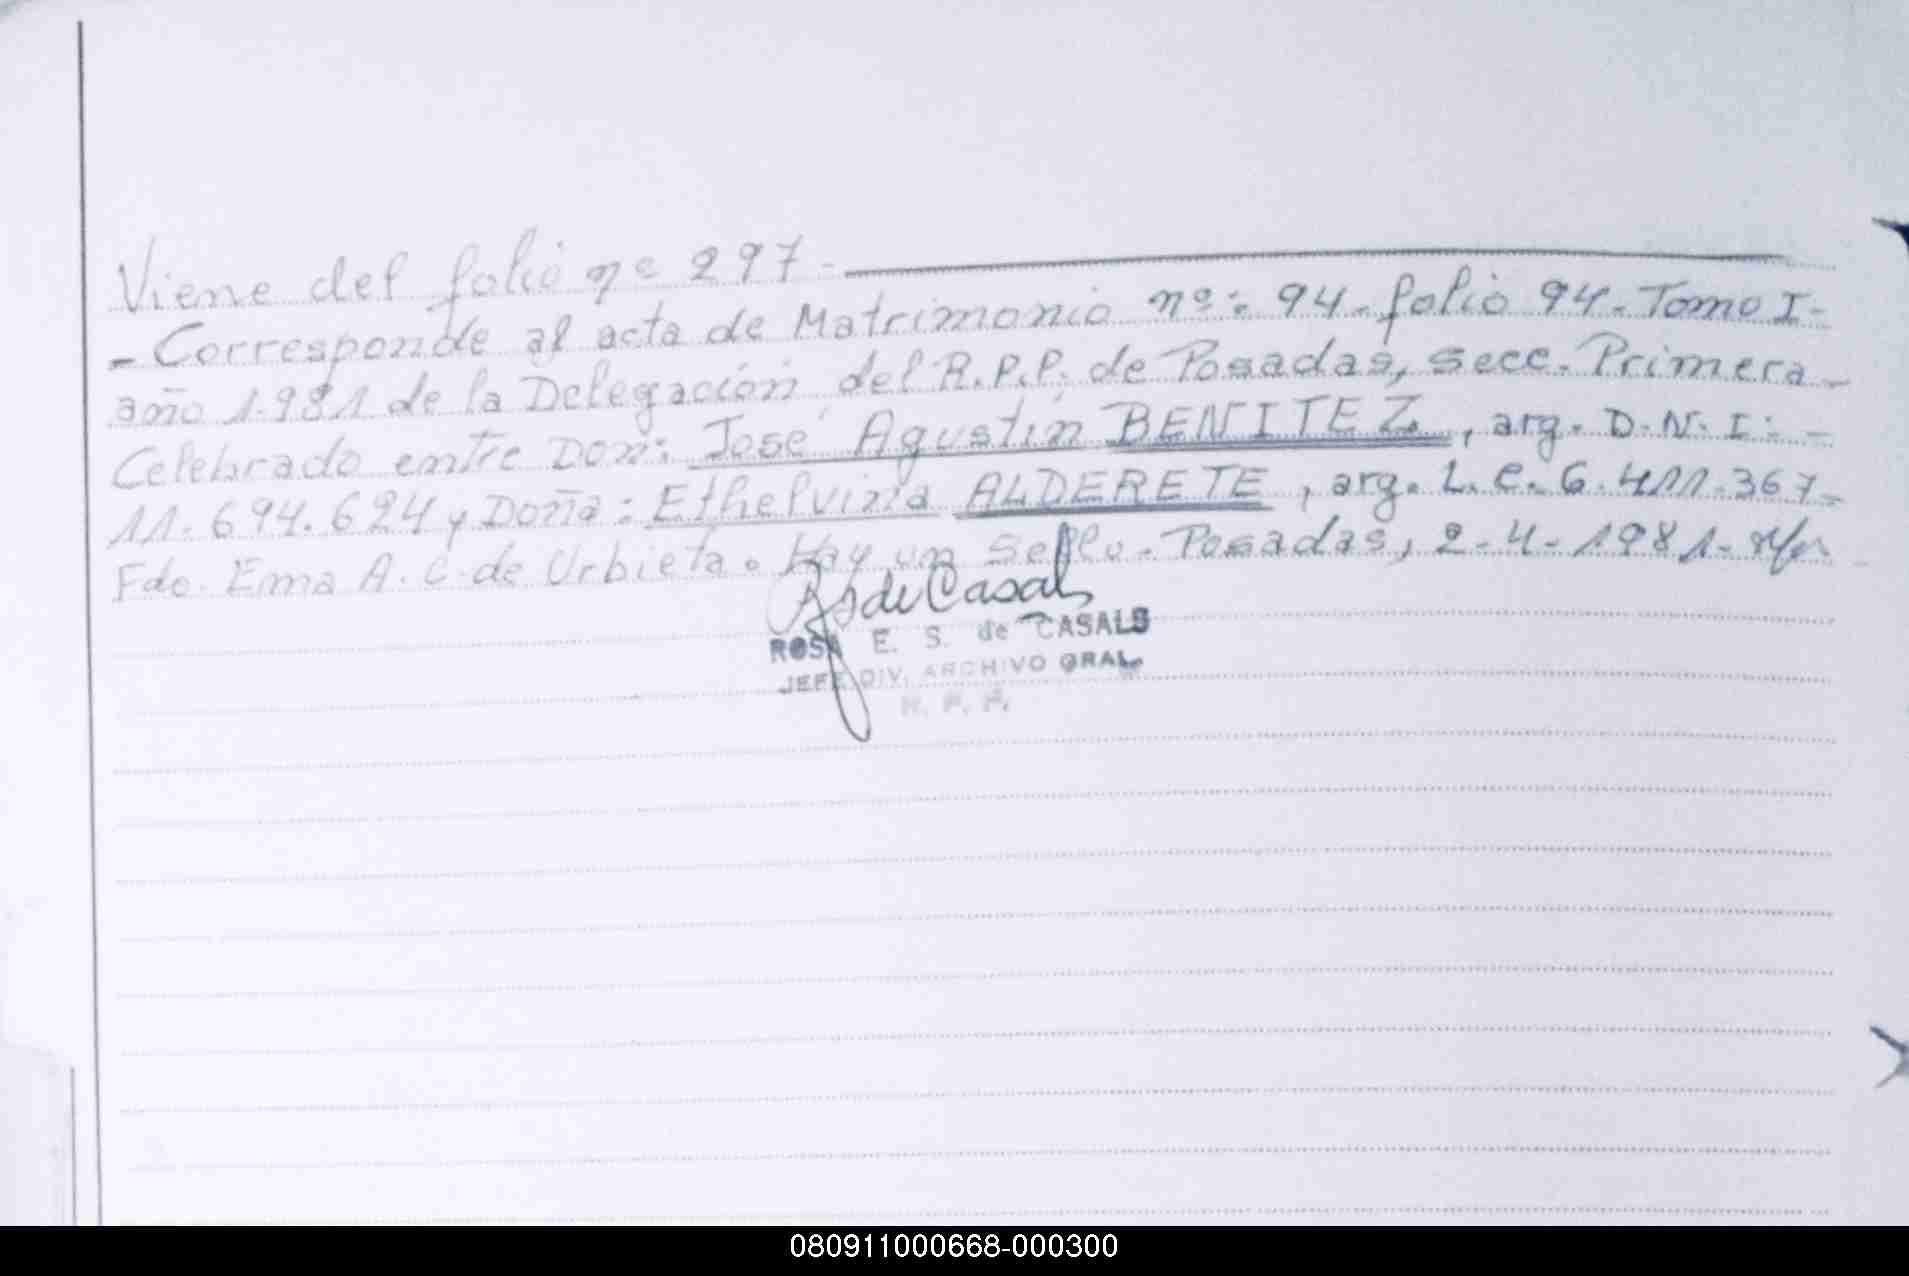 Viene del folio nº 297-
- Corresponde al acta de Matrimonio nº: 94- folio 94- Tomo I-
año 1.981 de la Delegación del R.P.P. de Posadas, secc. Primera -
Celebrado entre Don: José Agustín BENITEZ, arg. D.N.I: -
11.694.624 y Doña: Ethelvina ALDERETE, arg. L.C. 6.411.367-
Fdo. Ema A. C. de Urbieta. Hay un sello. Posadas, 2-4-1981-
de Casals
ROSA E. S. de CASALS
JEFE DIV. ARCHIVO GRAL.
R. P. P.
080911000668-000300